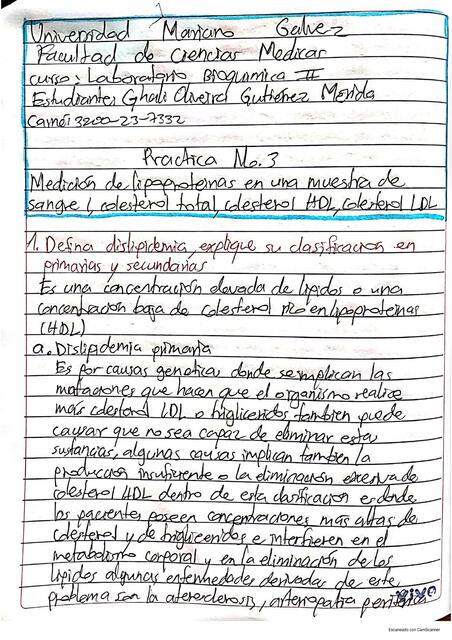 Universidad Mariano Galvez
Facultad de Ciencias Medicas
curso: Laboratorio Bioquimica II
Estudiante: Ghali Oliveira Gutierrez Merida
Carné: 3200-23-7332
Practica No. 3
Medición de lipoproteinas en una muestra de
sangre, colesterol total, colesterol HDL, colesterol LDL
1. Defina dislipidemia, explique su clasificación en
primarias y secundarias
Es una concentración elevada de lípidos o una
concentración baja de colesterol rico en lipoproteinas
(HDL)
a. Dislipidemia primaria
Es por causas geneticas donde se implican las
mutaciones que hacen que el organismo realice
más colesterol LDL o trigliceridos tambien puede
causar que no sea capaz de eliminar estas
sustancias, algunas causas implican tambien la
producción insuficiente o la eliminación excesiva de
colesterol HDL dentro de esta clasificación es donde
los pacientes poseen concentraciones más altas de
colesterol y de trigliceridos e interfieren en el
metabolismo corporal y en la eliminación de los
lípidos algunas enfermedades derivadas de este
problema son la aterosclerosis, arteriopatia
Escaneado con CamScanner